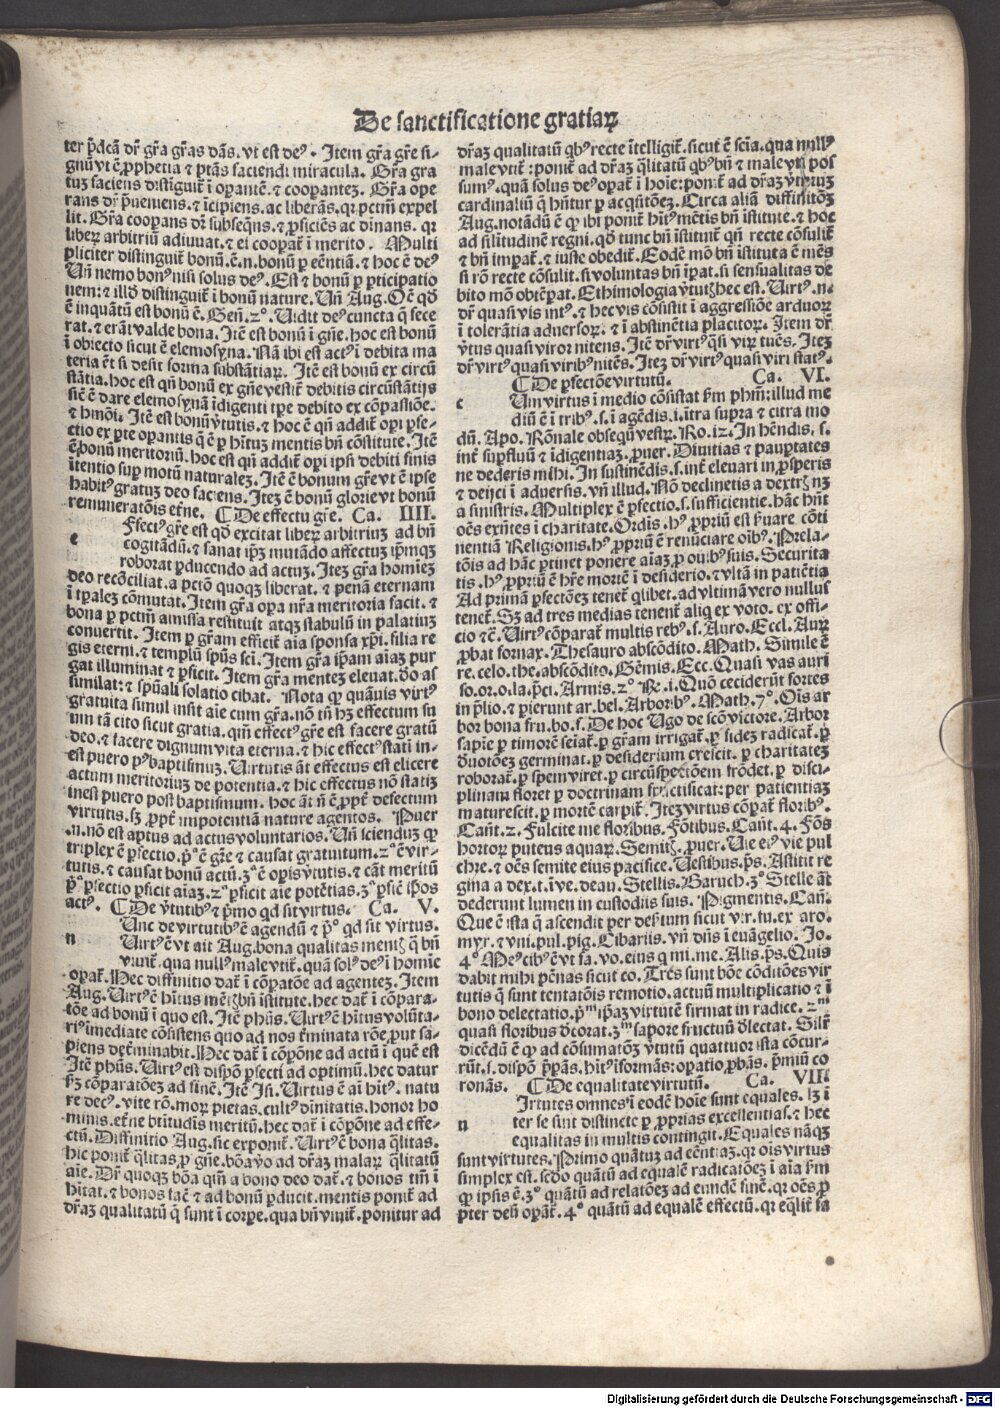 De sanctificatione gratiaꝝ
ter p̄dcā dr̄ gr̄a gr̄as dās. vt est deꝰ. Item gr̄a gr̄e si-
gnū vt ē ꝓphetia ⁊ ptās faciendi miracula. Gr̄a gra
tuꝫ faciens distīguit̄ ī opantē. ⁊ coopanteꝫ. Gr̄a ope
rans dr̄ p̄ueniens. ⁊ īcipiens. ac liberās. qꝛ pctm̄ expel
lit. Gr̄a cooꝑans dr̄ subseqn̄s. ⁊ ꝑficiēs ac dinans. qꝛ
liberꝝ arbitriū adiuuat. ⁊ ei cooꝑat̄ ī merito. Multi
pliciter distinguit̄ bonū. ē.n. bonū ꝑ eēntiā. ⁊ hoc ē deꝰ
Vn̄ nemo bonꝰ nisi solus deꝰ. Est ⁊ bonū ꝑ pticipatio
nem: ⁊ illd̄ distinguit̄ ī bonū nature. Vn̄ Aug. Oē qd̄
ē inquātū est bonū ē. Gen̄. 2°. Uidit deꝰ cuncta q̄ fece
rat. ⁊ erāt valde bona. Itē est bonū ī gn̄e. hoc est bonū
ī obiecto sicut ē elemosyna. Nā ibi est actꝰ ī debita ma
teria et̄ si desit forma substātiaꝝ. Itē est bonū ex circū
stātia. hoc est qn̄ bonū ex gn̄e vestit̄ debitis circūstātijs
sic̄ ē dare elemosynā īdigenti tp̄e debito ex cōpassiōe.
⁊ hmōi. Itē est bonū ꝟtutis. ⁊ hoc ē qn̄ addit̄ opi ꝑfe-
ctio ex ꝑte oꝑantis q̄ ē ꝑ hītuꝫ mentis bn̄ cōstitute. Itē
ē bonū meritoriū. hoc est qn̄ addit̄ opi ipsi debiti finis
ītentio suꝑ motū naturaleꝫ. Itē ē bonum gr̄e vt ē ipse
habitꝰ gratuꝫ deo faciens. Iteꝫ ē bonū glorie vt bonū
remuneratōis et̄ne. ⸿De effectu gr̄e. Ca. IIII.
e Ffectꝰ gr̄e est qd̄ excitat liberꝝ arbitriuꝫ ad bn̄
cogitādū. ⁊ sanat ip̄ꝫ mutādo affectuꝫ ip̄mqꝫ
roborat ꝑducendo ad actuꝫ. Iteꝫ gr̄a homieꝫ
deo recōciliat. a pctō quoqꝫ liberat. ⁊ penā eternam
ī tp̄aleꝫ cōmutat. Item gr̄a oꝑa nr̄a meritoria facit. ⁊
bona ꝑ pctm̄ amissa restituit atqꝫ stabulū in palatiuꝫ
conuertit. Item ꝑ gr̄am efficit̄ aīa sponsa xp̄i. filia re
gis eterni. ⁊ templū spūs sc̄i. Item gr̄a ip̄am aīaꝫ pur
gat illuminat ⁊ ꝑficit. Item gr̄a menteꝫ eleuat. do as
similat: ⁊ spūali solatio cibat. Nota qꝙ quāuis virtꝰ
gratuita simul insit aīe cum gr̄a. nō tn̄ hꝫ effectum su
um tā cito sicut gratia. qm̄ effectꝰ gr̄e est facere gratū
deo. ⁊ facere dignum vita eterna. ⁊ hic effectꝰ stati in-
est puero pꝰ baptismuꝫ. Uirtutis āt effectus est elicere
actum meritoriuꝫ de potentia. ⁊ hic effectus nō statiꝫ
inest puero post baptismum. hoc āt nō ē ꝓpt̄ defectum
virtutis. sꝫ ꝓpt̄ impotentiā nature agentos. Puer
.n. nō est aptus ad actus voluntarios. Vn̄ sciendum ꝙ
triplex ē ꝑfectio. pª ē gr̄e ⁊ causat gratuitum. 2ª ē vir-
tutis. ⁊ causat bonū actū. 3ª ē opis ꝟtutis. ⁊ cāt meritū
pª ꝑfectio ꝑficit aīaꝫ. 2ª ꝑficit aīe potētias. 3ª ꝑficit ip̄os
actꝰ. ⸿De ꝟtutibꝰ ⁊ p̄mo qd sit virtus. Ca. V.
n Unc de virtutibꝰ ē agendū ⁊ pº qd sit virtus.
Uirtꝰ ē vt ait Aug. bona qualitas mentꝭ q̄ bn̄
viuit̄. qua nullꝰ male vtit̄. quā solꝰ deꝰ ī homīe
opat̄. Hec diffinitio dat̄ ī cōꝑatōe ad agenteꝫ. Item
Aug. Uirtꝰ ē hītus mētꝭ bn̄ īstitute. hec dat̄ ī cōpara-
tōe ad bonū ī quo est. Itē phūs. Uirtꝰ ē hītus volūta-
riꝰ īmediate cōsistens quo ad nos t̄minata rōe. put sa-
piens det̄minabit. Hec dat̄ ī cōꝑōne ad actū ī quē est
Itē phūs. Uirtꝰ est dispō ꝑfecti ad optimū. hec datur
ẜm cōꝑaratōeꝫ ad finē. Itē Isi. Uirtus ē aī hītꝰ. natu
re decꝰ. vite rō. moꝝ pietas. cultꝰ diuitatis. honor ho
minis. et̄ne btitudis meritū. hec dat̄ ī cōꝑōne ad effe-
ctū. Diffinitio Aug. sic exponit̄. Uirtꝰ ē bona q̄litas.
hic ponit̄ q̄litas ꝑ gn̄e. bōa ꝟo ad dr̄aꝫ malaꝝ q̄litatū
aīe. Dr̄ quoqꝫ bōa qm̄ a bono deo dat̄. ⁊ bonos tm̄ ī
hītat. ⁊ bonos facē ⁊ ad bonū ꝑducit. mentis ponit̄ ad
dr̄aꝫ qualitatū q̄ sunt ī corꝑe. qua bn̄ viuit̄. ponitur ad
dr̄aꝫ qualitatū qbꝰ recte ītelligit̄. sicut ē scīa. qua nullꝰ
male vtit̄: ponit̄ ad dr̄aꝫ q̄litatū qbꝰ bn̄ ⁊ male vti pos
sumꝰ. quā solus deꝰ opat̄ ī hoīe: ponit̄ ad dr̄aꝫ ꝟtutuꝫ
cardinaliū q̄ hn̄tur ꝑ acq̄sitōeꝫ. Circa aliā diffinitōꝫ
Aug. notādū ē ꝙ ibi ponit̄ hītꝰ mētis bn̄ īstitute. ⁊ hoc
ad silitudinē regni. qd̄ tunc bn̄ īstituit̄ qn̄ recte cōsulit̄
⁊ bn̄ imꝑat̄. ⁊ iuste obedit̄. Eodē mō bn̄ īstituta ē mēs
si rō recte cōsulit. si voluntas bn̄ īꝑat. si sensualitas de
bito mō obtēꝑat. Ethimologia ꝟtutꝭ hec est. Uirtꝰ.n.
dr̄ quasi vis intꝰ. ⁊ hec vis cōsistit ī aggressiōe arduoꝝ
ī tolerātia aduersoꝝ. ⁊ ī abstinētia placitoꝝ. Item dr̄
ꝟtus quasi viror nitens. Itē dr̄ virtꝰ qsi viꝝ tuēs. Iteꝫ
dr̄ virtꝰ quasi viribꝰ nitēs. Iteꝫ dr̄ virtꝰ quasi viri statꝰ.
⸿De ꝑfectōe virtutū. Ca. VI.
c Um virtus ī medio cōsistat ẜm phm̄: illud me
diū ē ī tribꝰ. s. ī agēdis. ī. ītra supra ⁊ citra mo
dū. Apo. Rōnale obsequiū vestꝝ. Ro. 12. In hēndis. s.
int̄ suꝑfluū ⁊ īdigentiaꝫ. ꝓuer. Diuitias ⁊ pauꝑtates
ne dederis mihi. In sustinēdis. s. int̄ eleuari in ꝓsperis
⁊ deijci ī aduersis. vn̄ illud. Nō declinetis a dextrꝭ nꝫ
a sinistris. Multiplex ē ꝑfectio. s. sufficientie. hāc hn̄t
oēs exn̄tes ī charitate. Ordīs. hꝰ ꝓpriū est ẜuare cōti
nentiā Religionis. hꝰ ꝓpriū ē renūciare oībꝰ. Prela-
tōis ad hāc ꝑtinet ponere aīaꝫ ꝓ ouibꝰ suis. Securita
tis. hꝰ ꝓpriū ē hr̄e mortē ī desiderio. ⁊ vitā in patiētia
Ad primā ꝑfectōeꝫ tenet̄ qlibet. ad vltimā vero nullus
tenet̄. Sꝫ ad tres medias tenent̄ aliq ex voto. ex offi-
cio ⁊c̄. Uirtꝰ cōꝑat̄ multis rebꝰ. s. Auro. Eccl. Auꝝ
ꝓbat fornax. Thesauro abscōdito. Math. Simile ē
re. celo. the. abscōdito. Gēmis. Ecc. Quasi vas auri
so. or. o. la. p̄ci. Armis. 2° Re. i. Quō ceciderūt fortes
in p̄lio. ⁊ pierunt ar. bel. Arboribꝰ. Math. 7°. Oīs ar
bor bona fru. bo. f. De hoc Ugo de scō victore. Arbor
sapīe ꝑ timorē seiat̄. ꝑ gr̄am irrigat̄. ꝑ fideꝫ radicat̄. ꝑ
deuotōeꝫ germinat. ꝑ desiderium crescit. ꝑ charitateꝫ
roborat̄. ꝑ spem viret. ꝑ circūspectiōem frōdet. ꝑ disci-
plinam floret ꝑ doctrinam fructificat: per patientiaꝫ
maturescit. ꝑ mortē carpit̄. Iteꝫ virtus cōꝑat̄ floribꝰ.
Can̄t. 2. Fulcite me floribus. Fōtibus. Can̄t. 4. Fōs
hortoꝝ puteus aquaꝝ. Semitꝭ. ꝓuer. Uie eiꝰ vie pul
chre. ⁊ oēs semite eius pacifice. Uestibus. p̄s. Astitit re
gina a dex. t. ī ve. deau. Stellis. Baruch. 3° Stelle āt
dederunt lumen in custodiis suis. Pigmentis. Can̄.
Que ē ista q̄ ascendit per desertum sicut vir. fu. ex aro.
myr. ⁊ vni. pul. pig. Cibariis. vn̄ dn̄s ī euāgelio. Jo.
4° Meꝰ cibꝰ ē vt fa. vo. eius q mi. me. Alis. p̄s. Quis
dabit mihi pēnas sicut co. Tres sunt bōe cōditōes vir
tutis q̄ sunt tentatōis remotio. actuū multiplicatio ⁊ ī
bono delectatio. pm̄ ip̄aꝫ virtutē firmat in radice. 2m̄
quasi floribus decorat. 3m̄ sapore fructuū dlectat. Silr̄
dicēdū ē ꝙ ad cōsumatōꝫ ꝟtutū quattuor ista cōcur-
rūt. s. dispō p̄pās. hītꝰ īformās: oꝑatio ꝓbās. p̄miū co
ronās. ⸿De equalitate virtutū. Ca. VII.
n Irtutes omnes ī eodē hoīe sunt equales. lꝫ ī
ter se sint distincte ꝑ ꝓprias excellentias. ⁊ hec
equalitas in multis contingit. Equales nāqꝫ
sunt virtutes. Primo quātuꝫ ad eēntiaꝫ. qꝛ oīs virtus
simplex est. sedo quātū ad equalē radicatōeꝫ ī aīa ẜm
ꝙ ipsis ē. 3° quātū ad relatōeꝫ ad eundē finē. qꝛ oēs ꝓ
pter deū opat̄. 4° quātū ad equalē effectū. qꝛ eq̄lit̄ fa
Digitalisierung gefördert durch die Deutsche Forschungsgemeinschaft - DFG